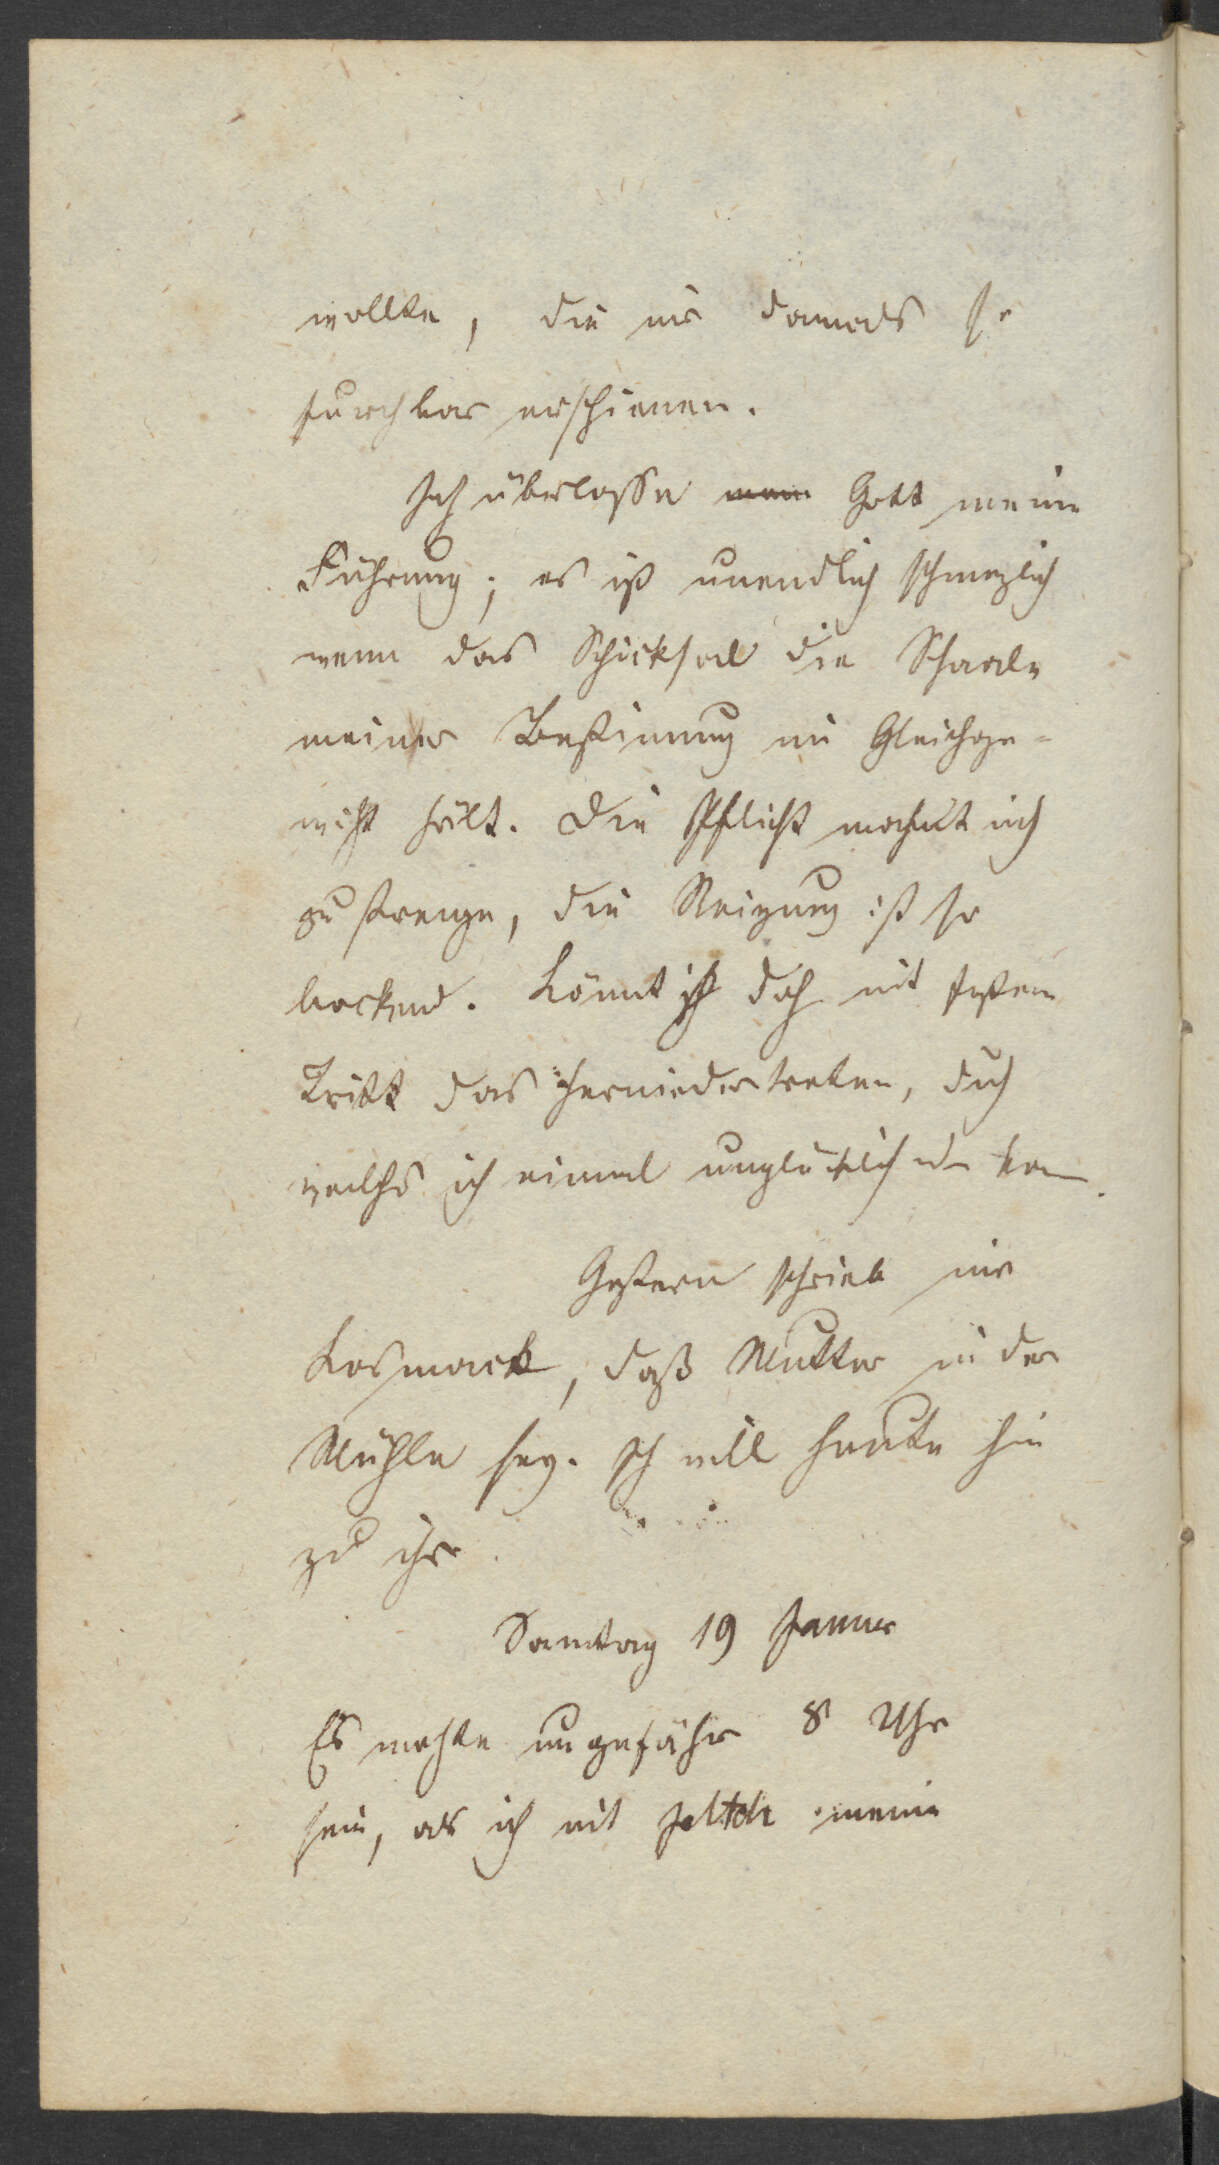 wollte, die mir damals so
furchbar erschienen.
Ich überlasse mein Gott meine
Führung; es ist unendlich schmezlich
wenn das Schicksal die Schaale
meiner Bestimung im Gleichge-
wicht hält. Die Pflicht mahnt mich
zu strenge, die Neigung ist so
lockend. Könnt ich doch mit festem
Tritt das herniedertreten, duch
welches ich einmal unglücklich
Gestern schrieb mir
Kosmack, daß Mutter in der
Mühle sey. Ich will heute hin
zu ihr.
Samtag 19 Januar
Es mochte ungefähr 8 Uhr
sein, als ich mit meine